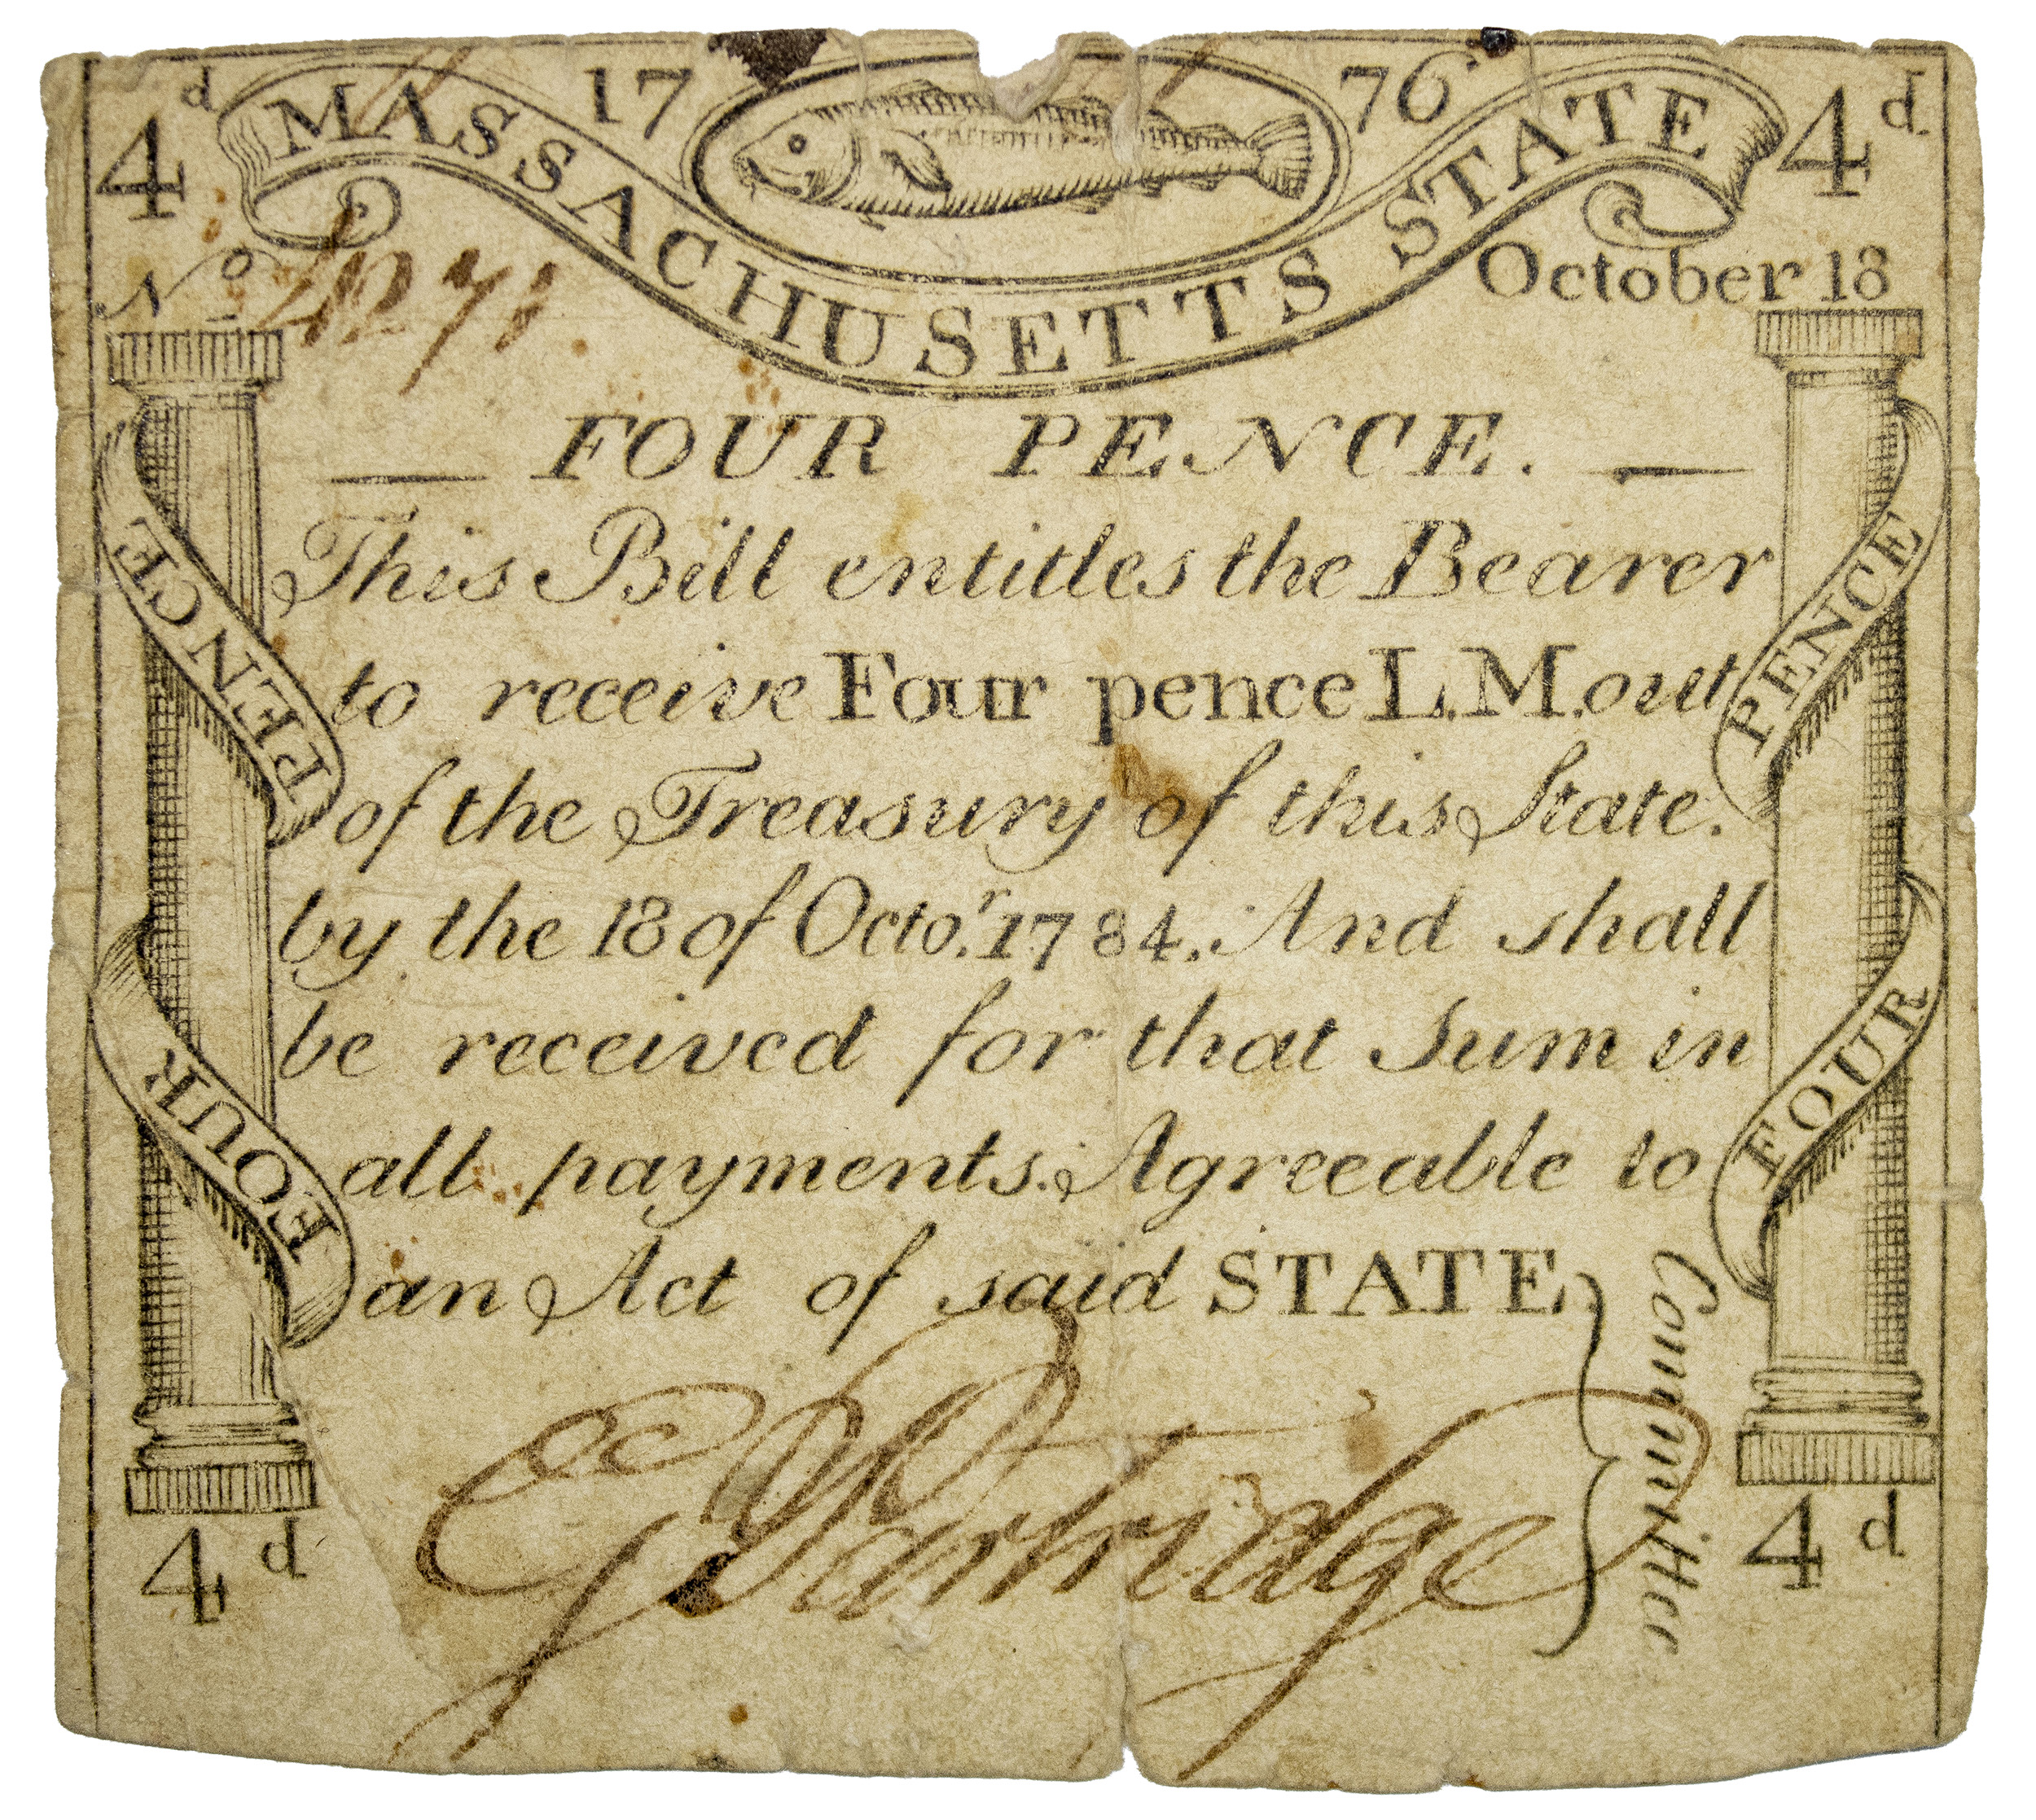 4d 17 76 4d
MASSACHUSETTS STATE
No 4271.
October 18
FOUR PENCE.
This Bill entitles the Bearer
to receive Four pence L.M. out
of the Treasury of this State.
by the 18 of Octo.r 1784. And shall
be received for that Sum in
all payments. Agreeable to
an Act of said STATE
FOUR PENCE
FOUR PENCE
G Partridge
Committee
4d 4d